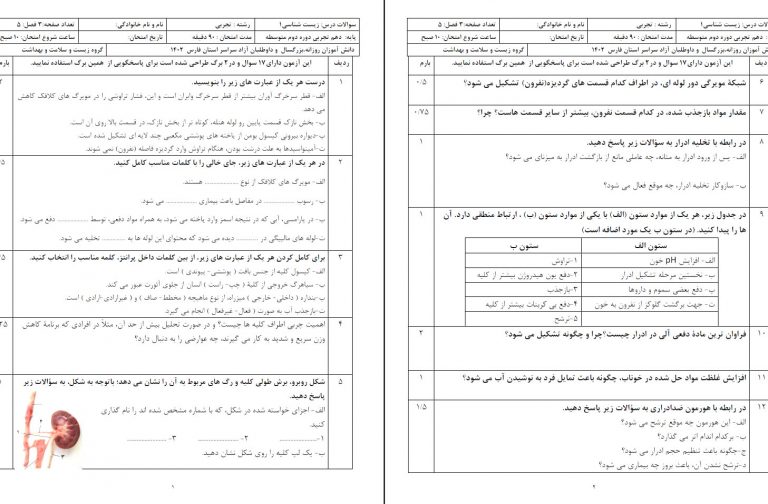 سوالات درس: زیست شناسی۱ رشته : تجربی نام و نام خانوادگی: تعداد صفحه:۳ فصل: ۵
پایه: دهم تجربی دوره دوم متوسطه مدت امتحان : ۹۰ دقیقه تاریخ امتحان: ساعت شروع امتحان: ۱۰ صبح
دانش آموزان روزانه،بزرگسال و داوطلبان آزاد سراسر استان فارس ۱۴۰۲ گروه زیست و سلامت و بهداشت
ردیف این آزمون دارای ۱۷ سوال و در۲ برگ طراحی شده است برای پاسخگویی از همین برگ استفاده نمایید.
۱ درست هر یک از عبارت های زیر را بنویسید.
الف- قطر سرخرگ آوران بیشتر از قطر سرخرگ وابران است و این، فشار تراوشی را در مویرگ های کلافک کاهش
می دهد.
ب- بخش نازک قسمت پایین رو لوله هنله، کوتاه تر از بخش نازک، در قسمت بالا روی آن است.
پ-دیواره بیرونی کپسول بومن از یاخته های پوششی مکعبی چند لایه ای تشکیل شده است.
ت-آمینواسیدها به علت درشت بودن، هنگام تراوش وارد گردیزه فاصله (نفرون) نمی شوند.
۲ در هر یک از عبارت های زیر، جای خالی را با کلمات مناسب کامل کنید.
الف- مویرگ های کلافک از نوع .................. هستند.
ب- رسوب .................. در مفاصل باعث بیماری .................. می شود.
پ- در پارامسی، آبی که در نتیجه اسمز وارد یاخته می شود، به همراه مواد دفعی، توسط .................. دفع می شود.
ت-لوله های مالپیگی در .................. دیده می شود که محتوای این لوله ها به .................. تخلیه می شود.
۳ برای کامل کردن هر یک از عبارت های زیر، از بین کلمات داخل پرانتز، کلمه مناسب را انتخاب کنید.
الف- کپسول کلیه از جنس بافت ( پوششی - پیوندی ) است.
ب- سیاهرگ خروجی از کلیۀ ( چپ- راست ) انسان از جلوی آئورت عبور می کند.
پ-بنداره ( داخلی- خارجی ) میزراه، از نوع ماهیچه ( مخطط- صاف ) و ( غیرارادی- ارادی ) است
ت-بازجذب آب به صورت ( فعال-غیرفعال ) انجام می گیرد.
۴ اهمیت چربی اطراف کلیه ها چیست؟ و در صورت تحلیل بیش از حد آن، مثلاً در افرادی که برنامۀ کاهش
وزن سریع و شدید به کار می گیرند، چه عوارضی را به دنبال دارد؟
۵ شکل روبرو، برش طولی کلیه و رگ های مربوط به آن را نشان می دهد؛ باتوجه به شکل، به سؤالات زیر
پاسخ دهید.
الف- اجزای خواسته شده در شکل، که با شماره مشخص شده اند را نام گذاری
کنید.
۱-.................. ۲- .................. ۳- ..................
ب- یک لپ کلیه را روی شکل نشان دهید.
۱
سوالات درس: زیست شناسی۱ رشته : تجربی نام و نام خانوادگی: تعداد صفحه:۳ فصل: ۵
پایه: دهم تجربی دوره دوم متوسطه مدت امتحان : ۹۰ دقیقه تاریخ امتحان: ساعت شروع امتحان: ۱۰ صبح
دانش آموزان روزانه،بزرگسال و داوطلبان آزاد سراسر استان فارس ۱۴۰۲ گروه زیست و سلامت و بهداشت
ردیف این آزمون دارای ۱۷ سوال و در۲ برگ طراحی شده است برای پاسخگویی از همین برگ استفاده نمایید.
۶ شبکۀ مویرگی دور لوله ای، در اطراف کدام قسمت های گردیزه(نفرون) تشکیل می شود؟ ۰/۵
۷ مقدار مواد بازجذب شده، در کدام قسمت نفرون، بیشتر از سایر قسمت هاست؟ چرا؟ ۰/۷۵
۸ در رابطه با تخلیه ادرار به سؤالات زیر پاسخ دهید. ۱
الف- پس از ورود ادرار به مثانه، چه عاملی مانع از بازگشت ادرار به میزنای می شود؟
ب- سازوکار تخلیه ادرار، چه موقع فعال می شود؟
۹ در جدول زیر، هر یک از موارد ستون (الف) با یکی از موارد ستون (ب) ، ارتباط منطقی دارد. آن ۱
ها را پیدا کنید. (در ستون ب یک مورد اضافه است)
ستون الف ستون ب
الف- افزایش pH خون ۱-تراوش
ب- نخستین مرحله تشکیل ادرار ۲-دفع یون هیدروژن بیشتر از کلیه
پ- دفع بعضی سموم و داروها ۳-بازجذب
ت- جهت برگشت گلوکز از نفرون به خون ۴-دفع بی کربنات بیشتر از کلیه
۵-ترشح
۱۰ فراوان ترین مادۀ دفعی آلی در ادرار چیست؟چرا و چگونه تشکیل می شود؟ ۲
۱۱ افزایش غلظت مواد حل شده در خوناب، چگونه باعث تمایل فرد به نوشیدن آب می شود؟ ۱
۱۲ در رابطه با هورمون ضدادراری به سؤالات زیر پاسخ دهید. ۱/۵
الف- این هورمون چه موقع ترشح می شود؟
ب- برکدام اندام اثر می گذارد؟
ج-چگونه باعث تنظیم حجم ادرار می شود؟
د-ترشح نشدن آن، باعث بروز چه بیماری می شود؟
۲